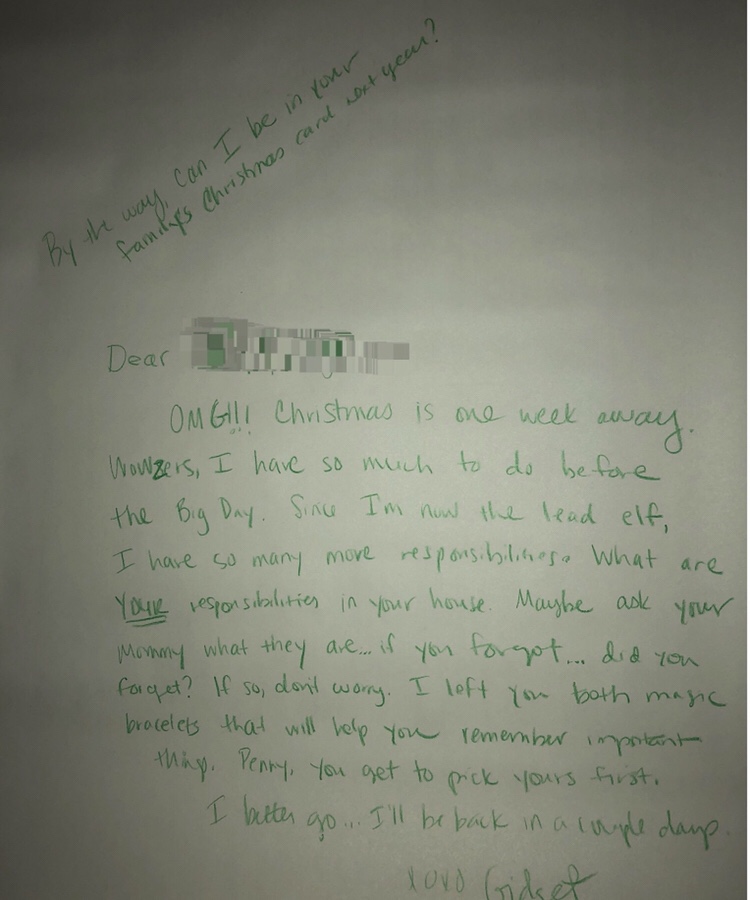 By the way, can I be in your
family's Christmas card next year?
Dear
OMG!!! Christmas is one week away.
Wowzers, I have so much to do before
the Big Day. Since I'm now the lead elf,
I have so many more responsibilities. What are
your responsibilities in your house. Maybe ask your
Mommy what they are... if you forgot... did you
forget? If so, don't worry. I left you both magic
bracelets that will help you remember important
things. Penny, you get to pick yours first.
I better go... I'll be back in a couple days.
xoxo Gidget